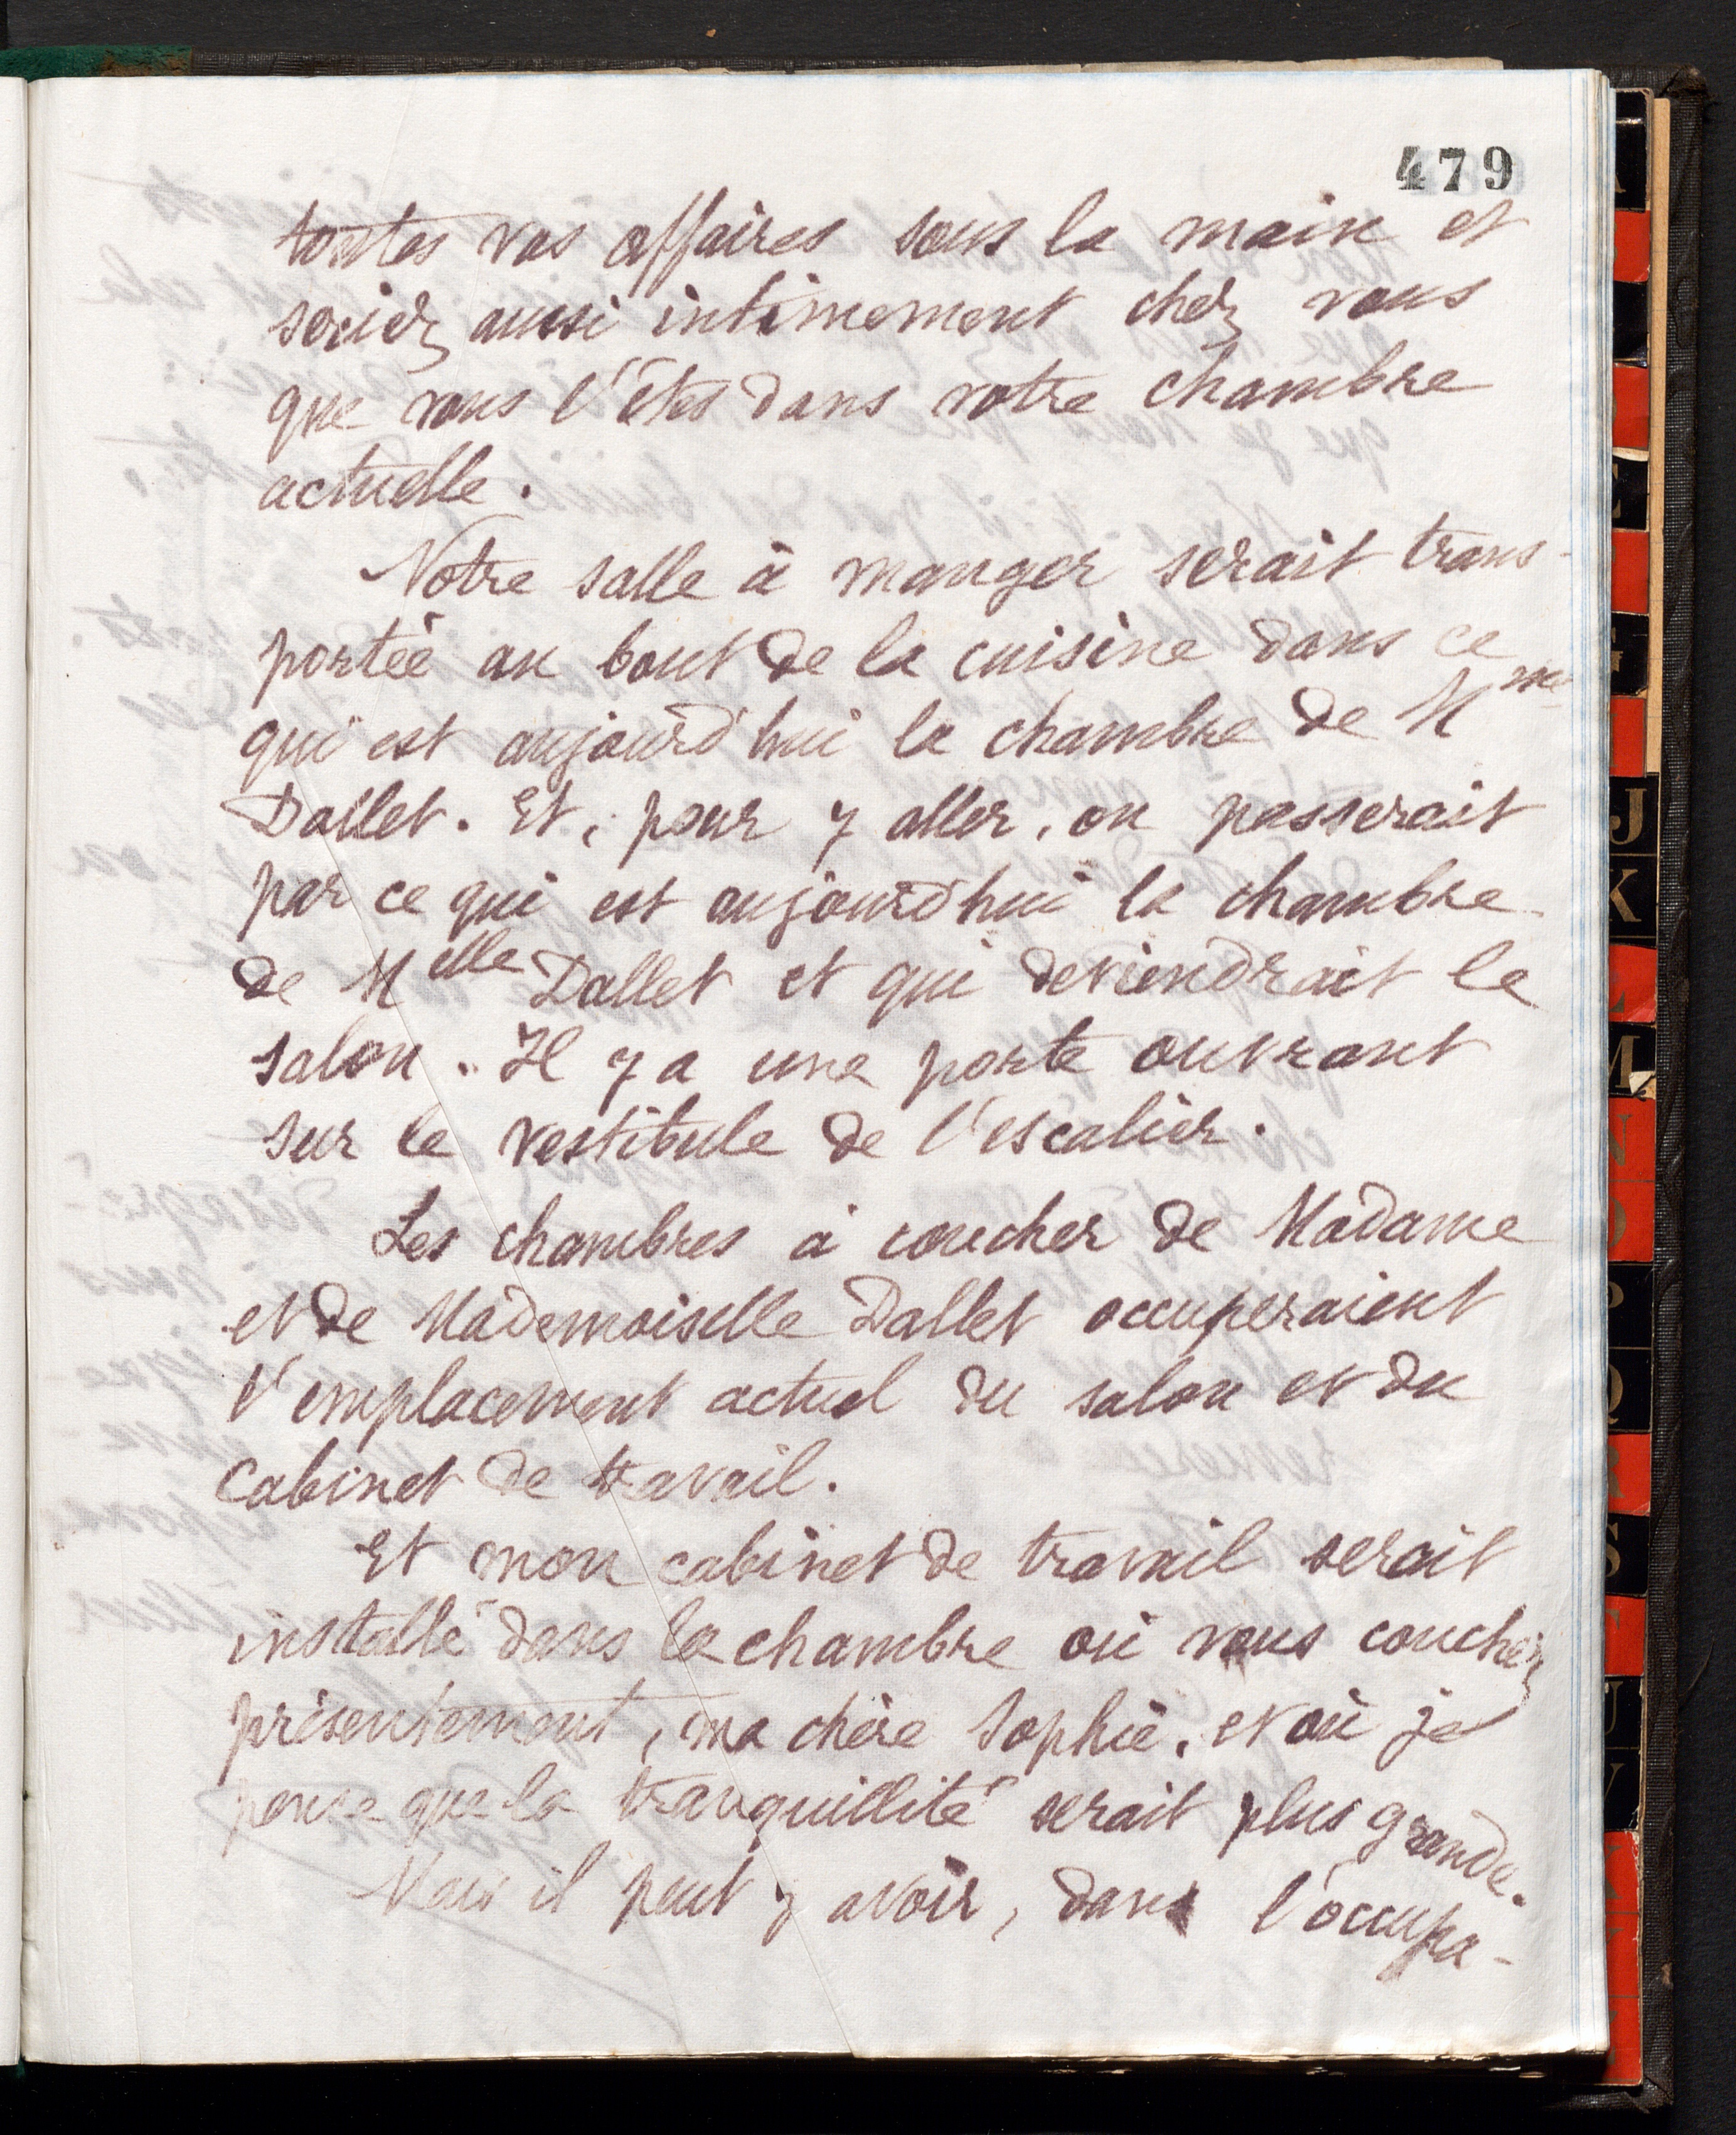 479
toutes vos affaires sous la main et
seriez aussi intimement chez vous
que vous l'êtes dans votre chambre
actuelle.
Notre salle à manger serait trans-
portée au bout de la cuisine dans ce
qui est aujourd'hui la chambre de Mme
Dallet. Et, pour y aller, on passerait
par ce qui est aujourd'hui la chambre
de Melle Dallet et qui deviendrait le
salon. Il y a une porte ouvrant
sur le vestibule de l'escalier.
Les chambres à coucher de Madame
et de Mademoiselle Dallet occuperaient
l'emplacement actuel du salon et du
cabinet de travail.
Et mon cabinet de travail serait
installé dans la chambre où vous couchez
présentement, ma chère Sophie, et où je
pense que la tranquillité serait plus grande.
Mais il peut y avoir, dans l'occupa-
J
K
L
M
N
O
P
Q
R
S
T
U
V